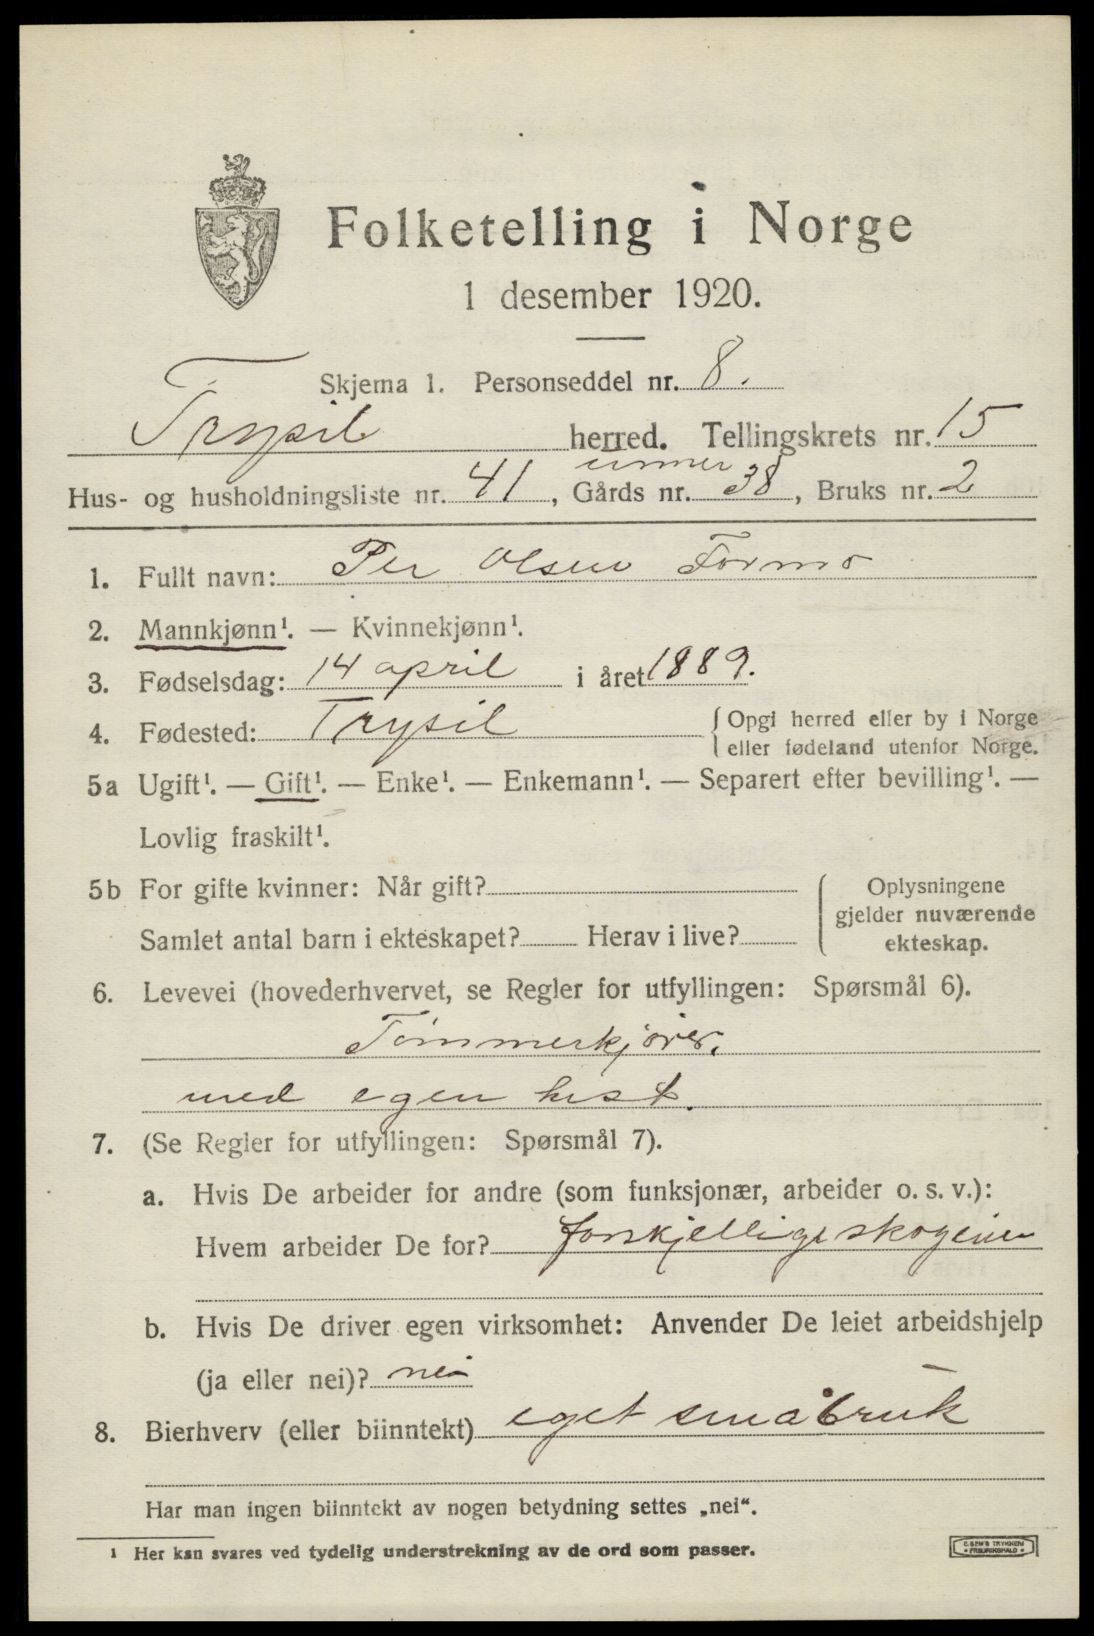 Folketelling i Norge
1 desember 1920.
Skjema 1. Personseddel nr. 8.
Trysil herred. Tellingskrets nr. 15
Hus- og husholdningsliste nr. 41, Gårds nr. 38, Bruks nr. 2
1. Fullt navn: Per Olsen Formo
2. Mannkjønn¹. — Kvinnekjønn¹.
3. Fødselsdag: 14 april i året 1889.
4. Fødested: Trysil { Opgi herred eller by i Norge
eller fødeland utenfor Norge.
5a Ugift¹. — Gift¹. — Enke¹. — Enkemann¹. — Separert efter bevilling¹. —
Lovlig fraskilt¹.
5b For gifte kvinner: Når gift?
Samlet antal barn i ekteskapet? Herav i live?
Oplysningene
gjelder nuværende
ekteskap.
6. Levevei (hovederhvervet, se Regler for utfyllingen: Spørsmål 6).
Tømmerkjører.
med egen hest.
7. (Se Regler for utfyllingen: Spørsmål 7).
a. Hvis De arbeider for andre (som funksjonær, arbeider o. s. v.):
Hvem arbeider De for? forskjellige skogeiere
b. Hvis De driver egen virksomhet: Anvender De leiet arbeidshjelp
(ja eller nei)? nei
8. Bierhverv (eller biinntekt) eget småbruk
Har man ingen biinntekt av nogen betydning settes „nei“.
¹ Her kan svares ved tydelig understrekning av de ord som passer.